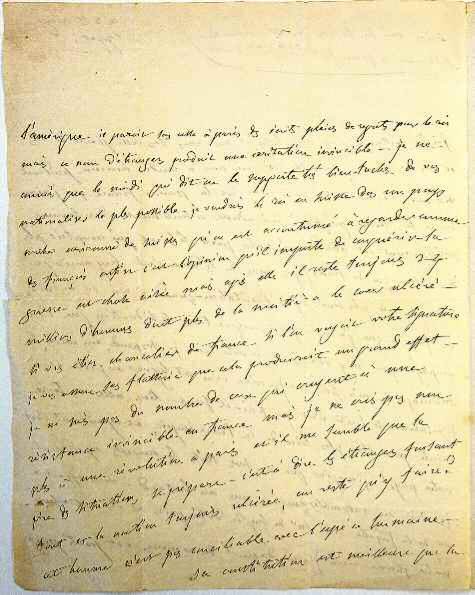 l'amérique. je parcours les
mais ce nom d'étranger produit une irritation invincible - je ne
connais que le midi qui dit on le supporte très bien
nationaliser le plus possible - je voudrois le roi en Suisse dans un pays
environné de Suisses qu'on est accoutumé à regarder comme
des français enfin c'est l'opinion qu'il importe de conquérir la
guerre est chose aisée mais après elle il reste toujours 24
millions d'hommes dont plus de la moitié a le cœur ulcéré -
si vous étiez chancelier de france - si l'on voyoit votre signature
je vous assure sans flatterie que cela produiroit un grand effet -
je ne suis pas du nombre de ceux qui croyent à une
résistance invincible en france mais je ne crois pas non
plus à une révolution à paris et il me semble que la
de situation se prépare - c'est à dire les étrangers
tout et la nation toujours ulcérée, au reste qu'y faire
cet homme n'est pas conciliable avec l'espèce humaine -
sa constitution est meilleure que la